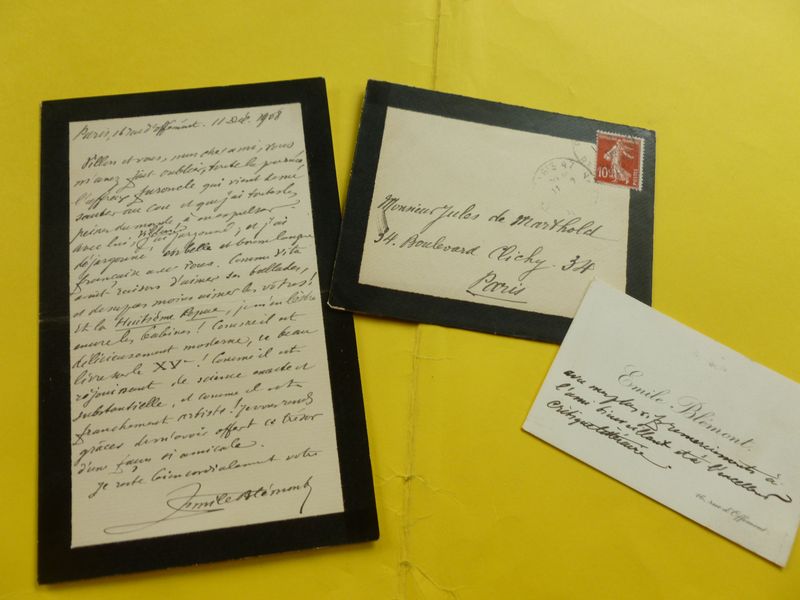 Paris, 16 rue d'Offémont. 11 Déc. 1908
Villon et vous, mon cher ami, vous
m'avez fait oublier, toute la journée,
l'affreux furoncle qui vient de me
sauter au cou et que j'ai toutes les
peines du monde à expulser.
avec lui, Villon, j'ai jargonné, et j'ai
déjargonné en belle et bonne langue
française avec vous. Comme vous
avez raison d'aimer ses ballades,
et de ne pas moins aimer les vôtres!
Et la Huitième Repue, je m'en lèche
encore les babines! Comme il est
délicieusement moderne, ce beau
livre sur le XVe! Comme il est
réjouissant de science exacte et
substantielle, et comme il est
franchement artiste! Je vous rends
grâces de m'avoir offert ce trésor
d'une façon si amicale.
Je reste bien cordialement votre
Emile Blémont
Monsieur Jules de Marthold
34. Boulevard Clichy. 34
Paris
10c
Emile Blémont.
avec mes plus vifs remerciements à
l'ami bienveillant et à l'excellent
Critique littéraire
16, rue d'Offémont